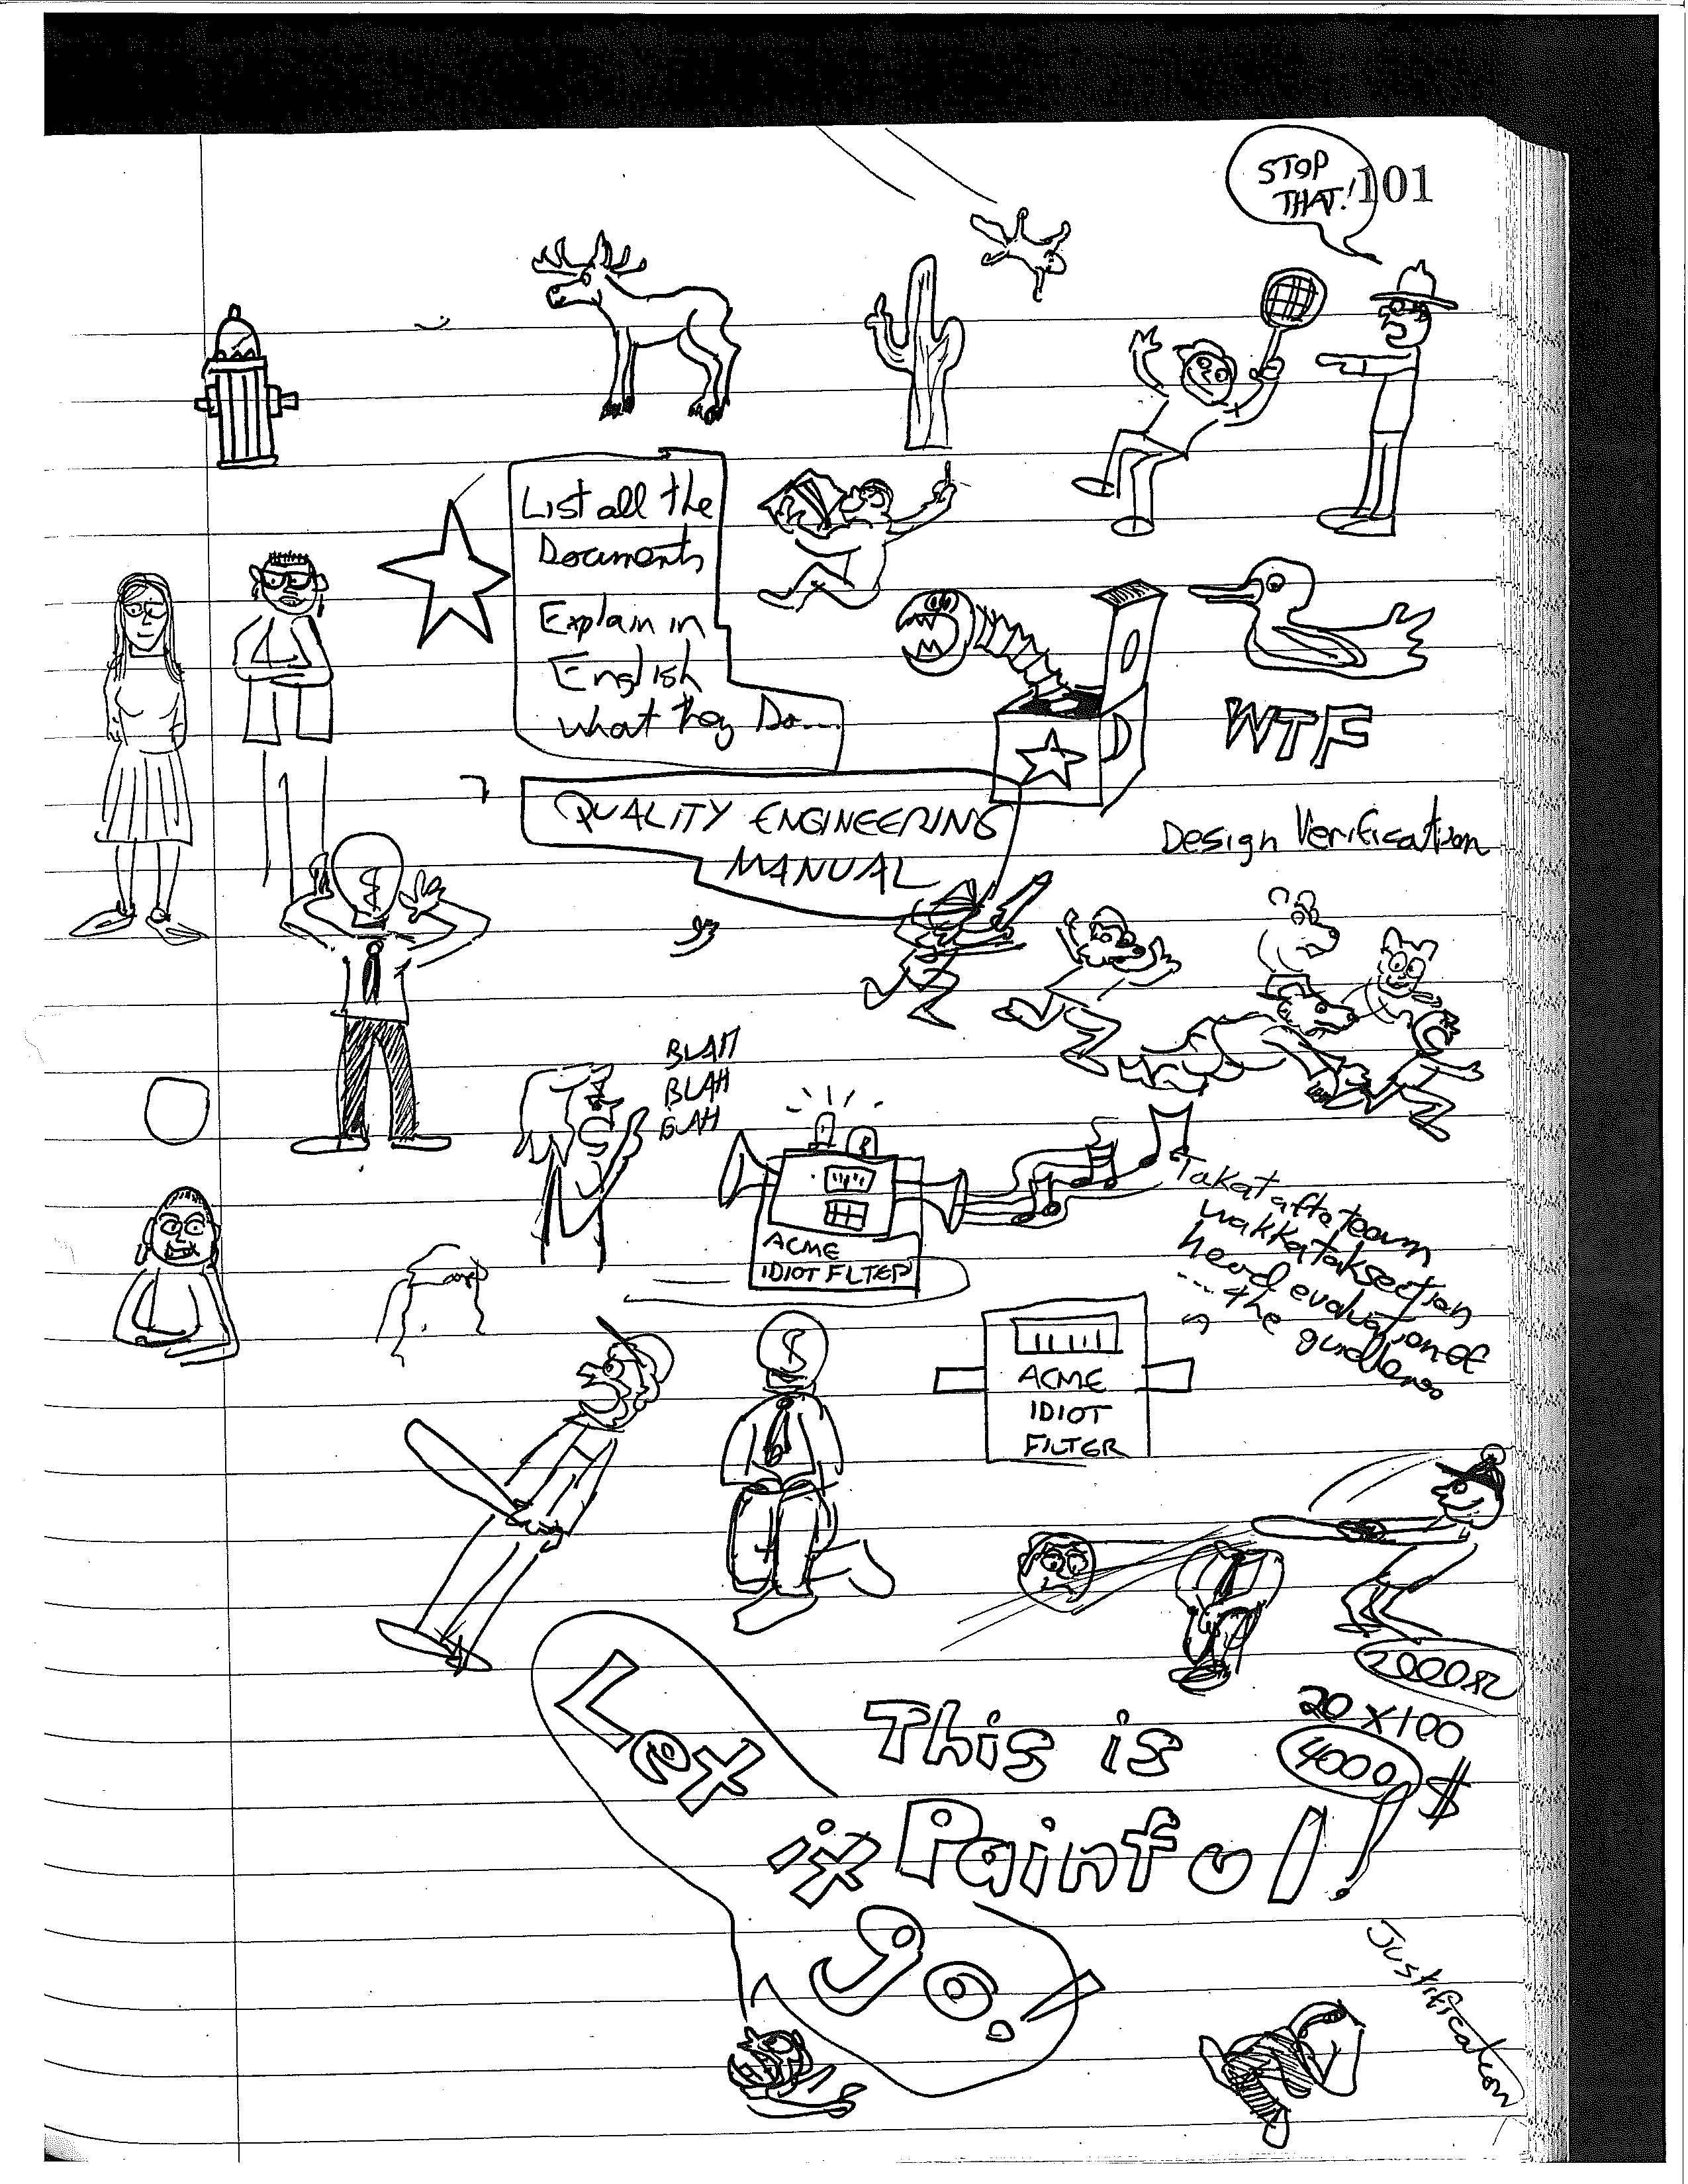 STOP
THAT!
101
List all the
Documents
Explain in
English
what they Do...
WTF
QUALITY ENGINEERING
MANUAL
Design Verification
BLAH
BLAH
BLAH
ACME
IDIOT FILTER
team
section
head evaluation of
.... the
ACME
IDIOT
FILTER
2000
20 x 100
4000 $
This is
Painful!
Let
it
go!
Justification